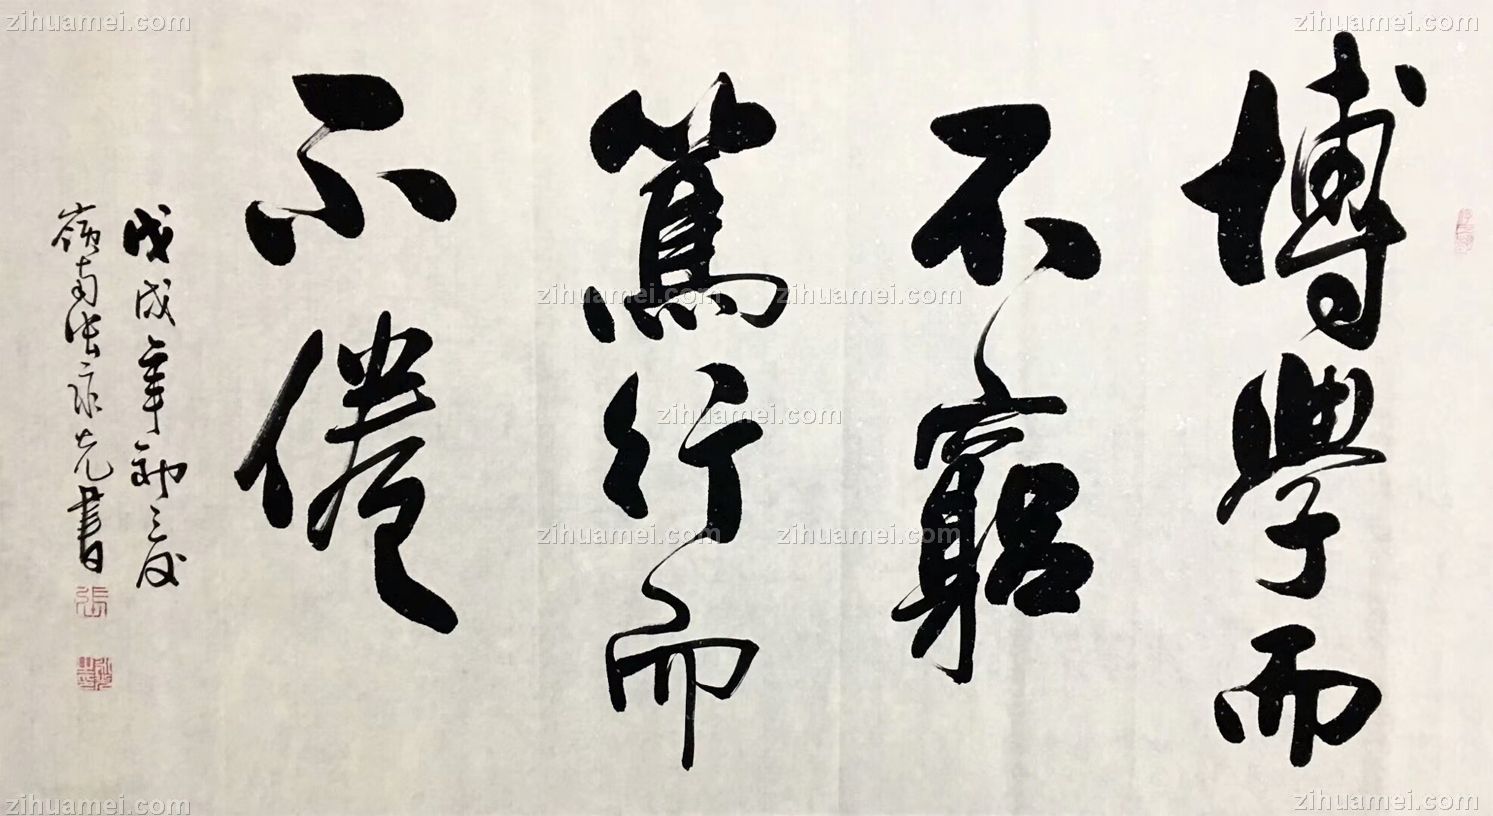 博學而
不窮
篤行而
不倦
戊戌年初夏
嶺南張永光書
張
zihuamei.com
zihuamei.com
zihuamei.com
zihuamei.com
zihuamei.com
zihuamei.com
zihuamei.com
zihuamei.com
zihuamei.com